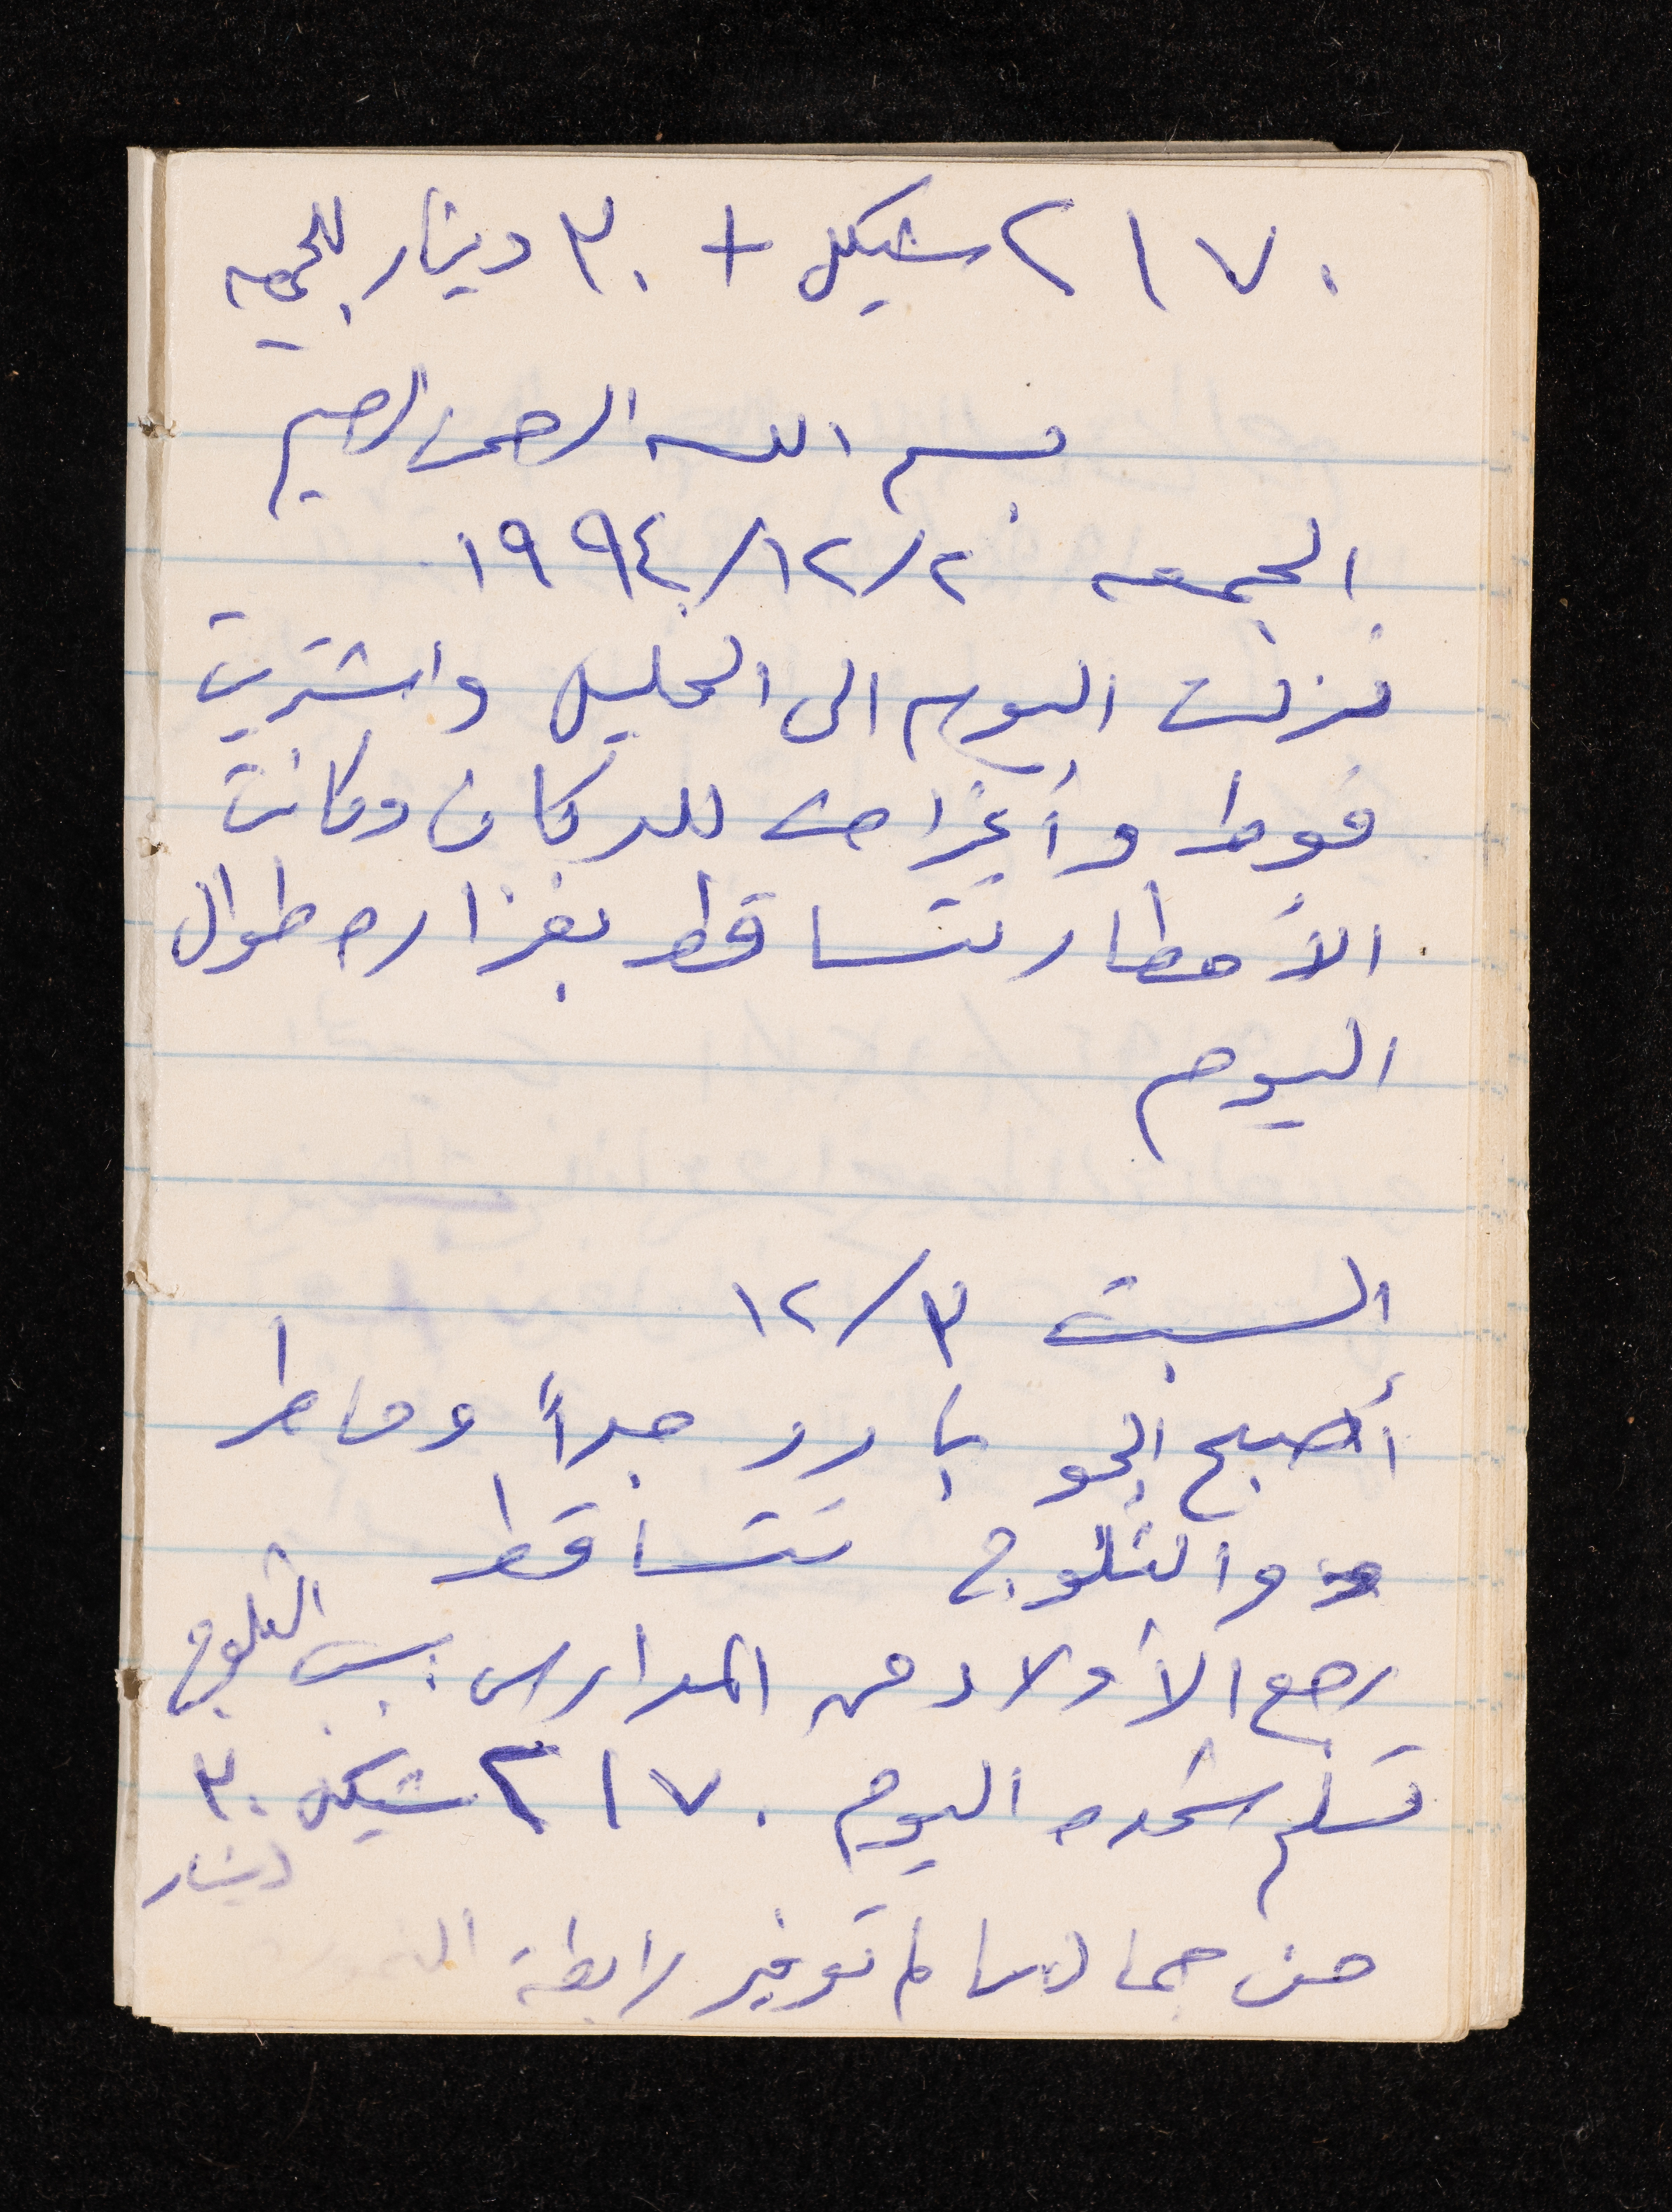 ٢١٧٠ شيكل + ٣٠ دينار للجمعيه
بسم الله الرحمن الرحيم
الجمعه ٢/١٢/١٩٩٤
نزلت اليوم الى الخليل واشتريت
فوط وأغراض للدكان وكانت
الأمطار تتساقط بغزاره طوال
اليوم
السبت ٣/١٢
أصبح الجو بارد جداً وماطرا
والثلوج تتساقط
رجع الأولاد من المدارس بسبب الثلوج
تسلم شحده اليوم ٢١٧٠ شيكل ٣٠
دينار
من حما توفير رابطة